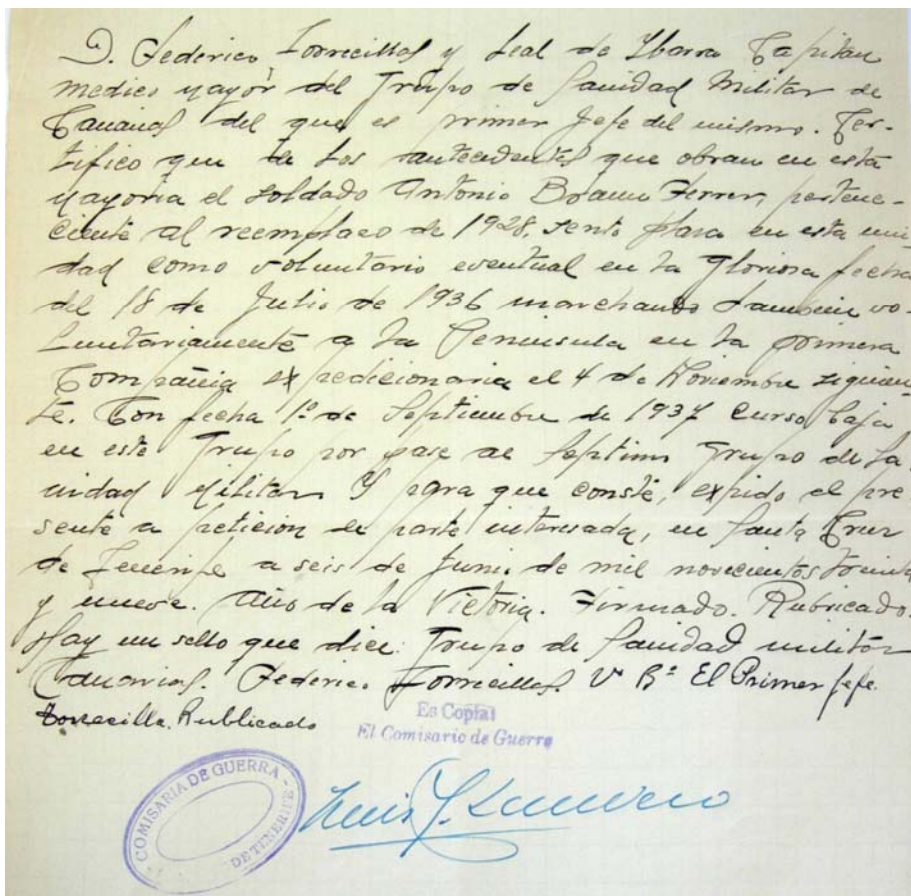 D. Federico Torrecillas y Leal de Ybarra Capitan
medico mayor del Grupo de Sanidad Militar de
Canarias del que es primer Jefe del mismo. Cer-
tifico que de los antecedentes que obran en esta
mayoria el soldado Antonio Ferrer, pertene-
ciente al reemplazo de 1928, sento plaza en esta uni-
dad como voluntario eventual en la Gloriosa fecha
del 18 de Julio de 1936 marchando tambien vo-
luntariamente a la Peninsula en la primera
Compañia expedicionaria el 4 de Noviembre siguien-
te. Con fecha 1º de Septiembre de 1937 curso baja
en este Grupo por pase al Septimo Grupo de Sa
nidad Militar Y para que conste, expido el pre
sente a peticion de parte interesada, en Santa Cruz
de Tenerife a seis de Junio de mil novecientos treinta
y nueve. Año de la Victoria. Firmado. Rubricado.
Hay un sello que dice: Grupo de Sanidad militar
Canarias. Federico Torrecillas. Vº Bº El Primer Jefe.
Torrecilla. Rublicado
Es Copia:
El Comisario de Guerra
COMISARIA DE GUERRA
DE TENERIFE
Luis